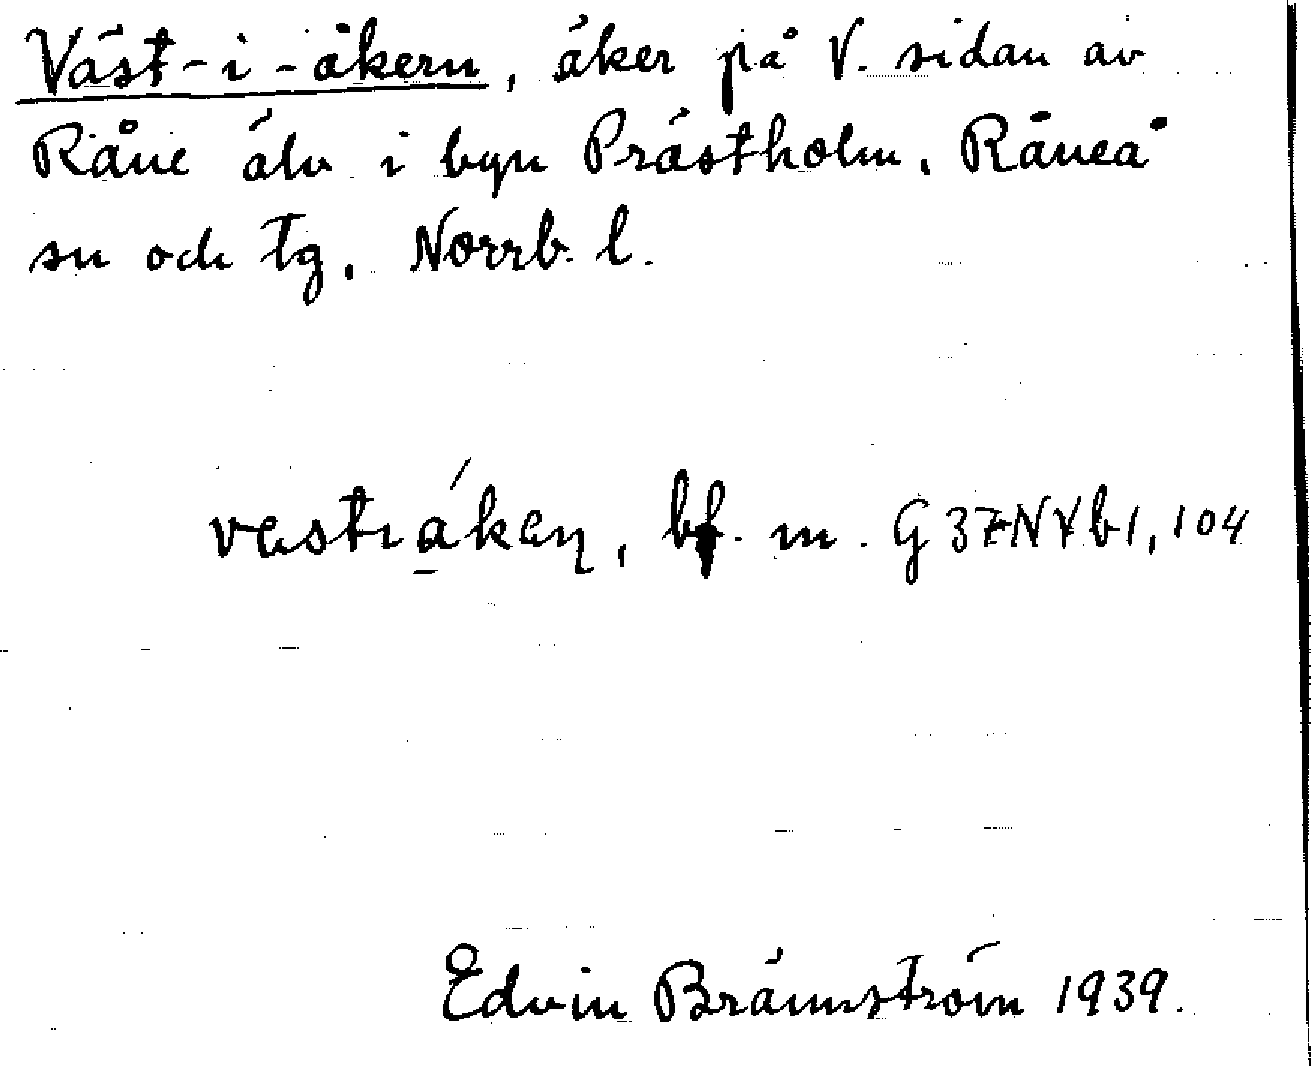 Väst-i-åkern, åker på V. sidan av
Råne älv i byn Prästholm, Råneå
sn och tg, Norrb. l.
vestıåken, bf. m. G37NYb1,104
Edvin Brännström 1939.